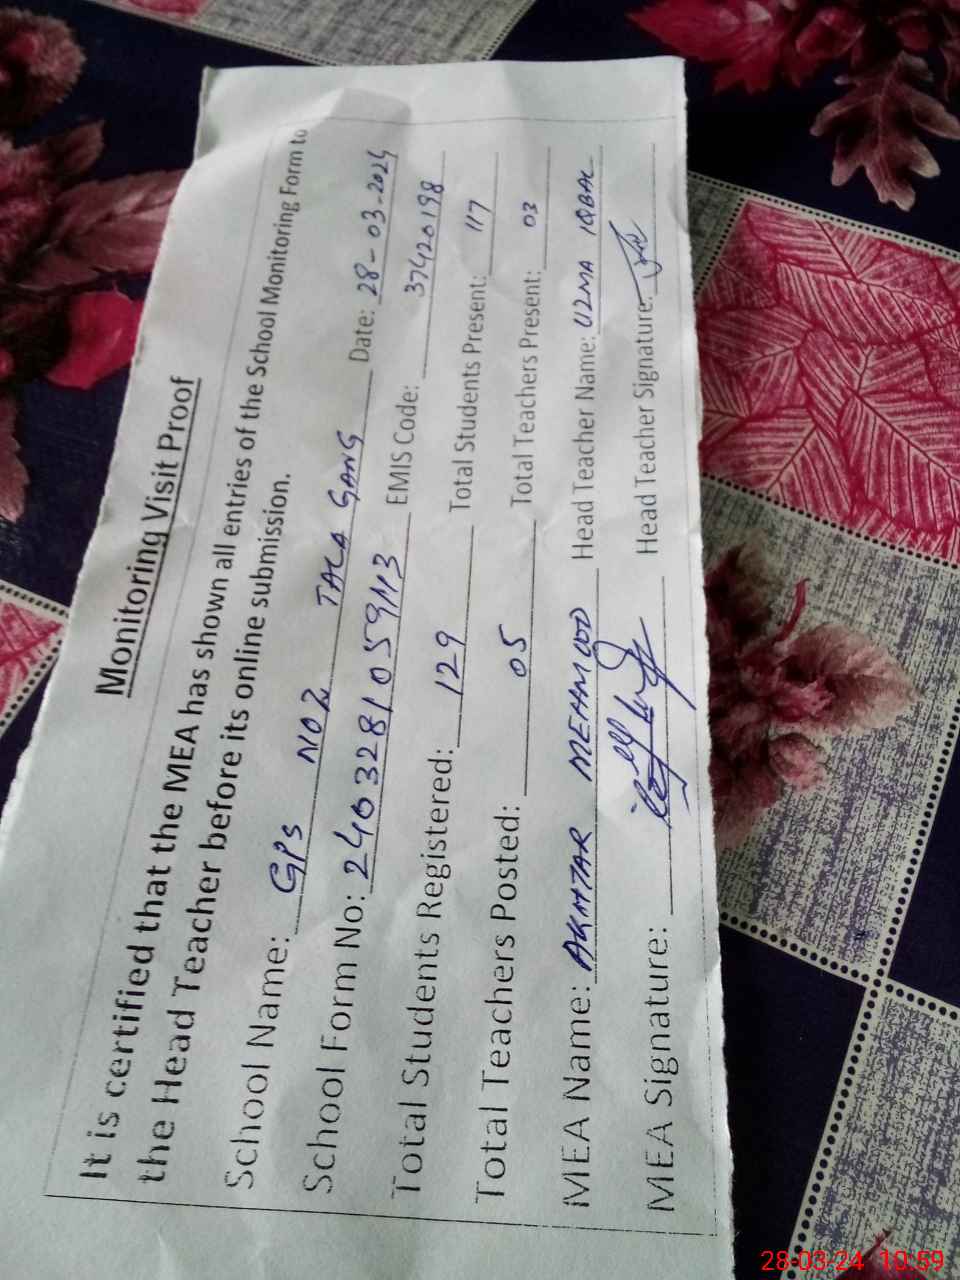 Monitoring Visit Proof
It is certified that the MEA has shown all entries of the School Monitoring Form to
the Head Teacher before its online submission.
School Name: GPS NO2 TALA GANG Date: 28-03-2024
School Form No: 2403281059113 EMIS Code: 37420198
Total Students Registered: 129 Total Students Present: 117
Total Teachers Posted: 05 Total Teachers Present: 03
MEA Name: AKHTAR MEHMOOD Head Teacher Name: UZMA IQBAL
MEA Signature: Head Teacher Signature:
28-03-24 10:59